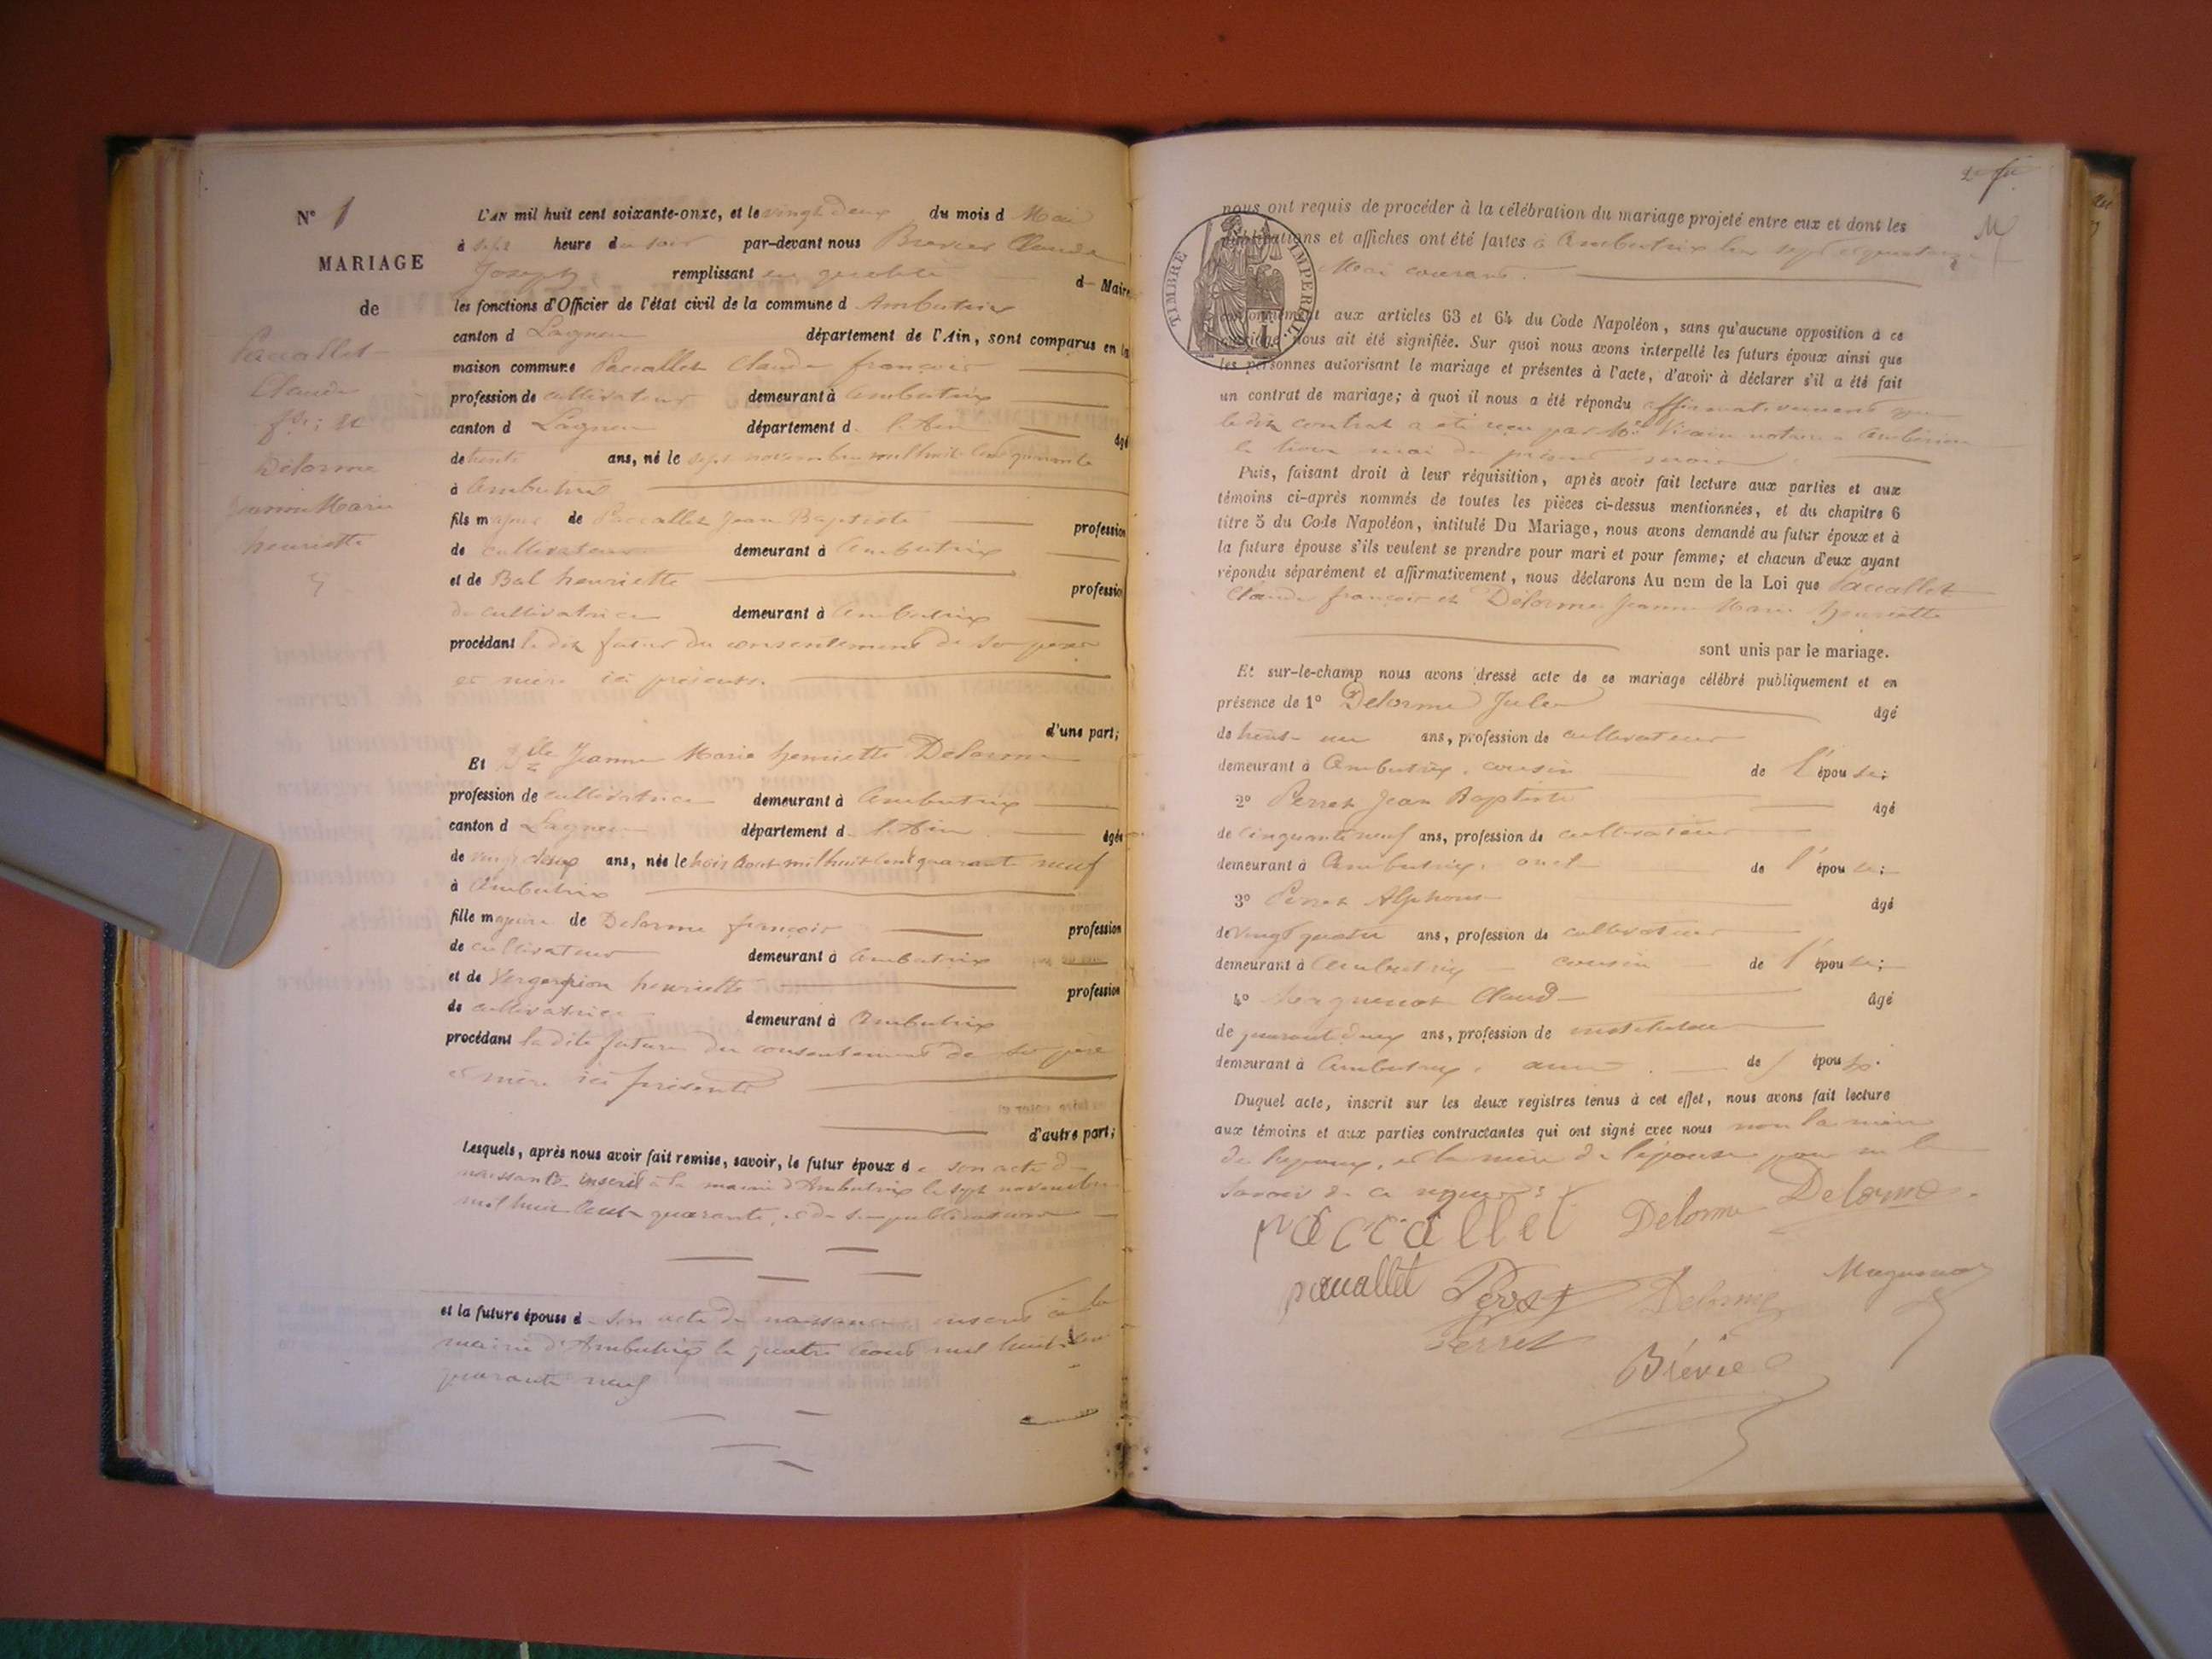 N° 1
MARIAGE
de
Paccallet
Claude
fçois et
Delorme
Jeanne Marie
henriette
L'AN mil huit cent soixante-onze, et le vingt deux du mois d Mai
à sept heure du soir par-devant nous Brevier Claude
Joseph remplissant en qualité d Maire
les fonctions d'Officier de l'état civil de la commune d Ambutrix
canton d Lagneu département de l'Ain, sont comparus en la
maison commune Paccallet Claude françois
profession de cultivateur demeurant à Ambutrix
canton d Lagneu département d l'Ain âgé
de trente ans, né le sept novembre mil huit cent quarante
à Ambutrix
fils majeur de Paccallet Jean Baptiste profession
de cultivateur demeurant à Ambutrix
et de Bal henriette profession
de cultivatrice demeurant à Ambutrix
procédant le dit futur du consentement de ses père
et mère ici présents
d'une part;
Et Dlle Jeanne Marie henriette Delorme
profession de cultivatrice demeurant à Ambutrix
canton d Lagneu département d l'Ain âgée
de vingt deux ans, née le trois Aout mil huit cent quarante neuf
à Ambutrix
fille majeure de Delorme françois profession
de cultivateur demeurant à Ambutrix
et de henriette profession
de cultivatrice demeurant à Ambutrix
procédant la dite future du consentement de ses père
et mère ici présents
d'autre part;
Lesquels, après nous avoir fait remise, savoir, le futur époux d e son acte de
naissance inscrit à la mairie d'Ambutrix le sept novembre
mil huit cent quarante, et de ses publications
et la future épouse d son acte de naissance inscrit à la
mairie d'Ambutrix le quatre aout mil huit cent
quarante neuf
2e
nous ont requis de procéder à la célébration du mariage projeté entre eux et dont les
publications et affiches ont été faites à Ambutrix les sept et quatorze
Mai courant.
TIMBRE IMPERIAL
conformément aux articles 63 et 64 du Code Napoléon, sans qu'aucune opposition à ce
mariage nous ait été signifiée. Sur quoi nous avons interpellé les futurs époux ainsi que
les personnes autorisant le mariage et présentes à l'acte, d'avoir à déclarer s'il a été fait
un contrat de mariage; à quoi il nous a été répondu affirmativement que
le dit contrat a été reçu par Me notaire à Ambérieu
le mai du présent mois
Puis, faisant droit à leur réquisition, après avoir fait lecture aux parties et aux
témoins ci-après nommés de toutes les pièces ci-dessus mentionnées, et du chapitre 6
titre 5 du Code Napoléon, intitulé Du Mariage, nous avons demandé au futur époux et à
la future épouse s'ils veulent se prendre pour mari et pour femme; et chacun d'eux ayant
répondu séparément et affirmativement, nous déclarons Au nom de la Loi que Paccallet
Claude françois et Delorme Jeanne Marie henriette
sont unis par le mariage.
Et sur-le-champ nous avons dressé acte de ce mariage célébré publiquement et en
présence de 1° Delorme Jules âgé
de trente un ans, profession de cultivateur
demeurant à Ambutrix, cousin de l'épouse;
2° Perret Jean Baptiste âgé
de cinquante neuf ans, profession de cultivateur
demeurant à Ambutrix, oncle de l'épouse;
3° Perret Alphonse âgé
de vingt quatre ans, profession de cultivateur
demeurant à Ambutrix cousin de l'épouse;
4° Claude âgé
de quarante deux ans, profession de instituteur
demeurant à Ambutrix, ami de s époux.
Duquel acte, inscrit sur les deux registres tenus à cet effet, nous avons fait lecture
aux témoins et aux parties contractantes qui ont signé avec nous non la mère
de l'époux, et la mère de l'épouse pour ne le
savoir de ce requises
paccallet Delorme Delorme
paccallet Delorme
Perret
Brévier